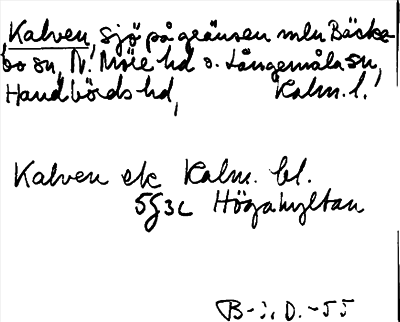 Kalven, sjö på gränsen mln Bäcke-
bo sn, N. Möre hd o. Långemåla sn,
Handbörds hd, Kalm. l.
Kalven ek Kalm. bl.
5G3c Högahyltan
B-i. D. -55